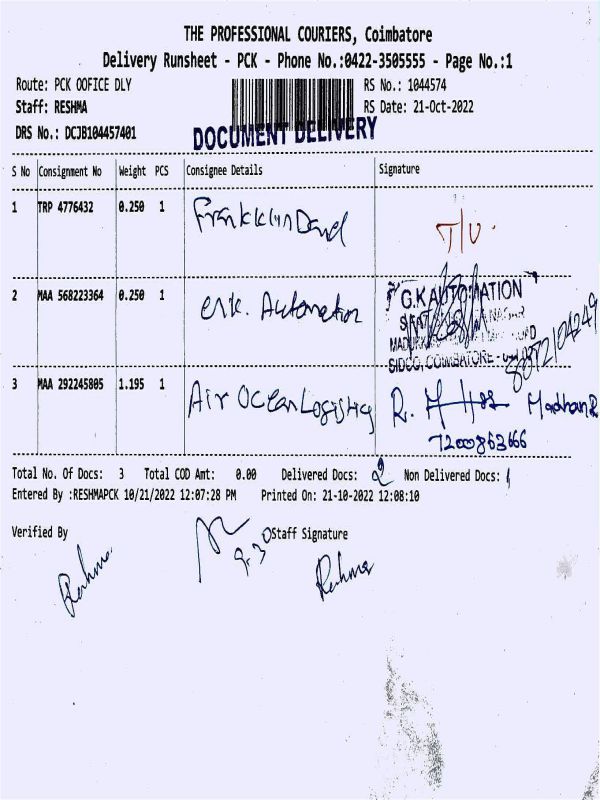 THE PROFESSIONAL COURIERS, Coimbatore
Delivery Runsheet - PCK - Phone No.:0422-3505555 - Page No.:1
Route: PCK OOFICE DLY RS No.: 1044574
Staff: RESHMA RS Date: 21-Oct-2022
DRS No.: DCJB104457401
DOCUMENT DELIVERY
S No Consignment No Weight PCS Consignee Details Signature
1 TRP 4776432 0.250 1 T/U.
2 MAA 568223364 0.250 1 Automation
G.K AUTOMATION
SIDCO, COIMBATORE -
3 MAA 292245805 1.195 1 Air Ocean Logistics R.
7200863666
Total No. Of Docs: 3 Total COD Amt: 0.00 Delivered Docs: 2 Non Delivered Docs: 1
Entered By :RESHMAPCK 10/21/2022 12:07:28 PM Printed On: 21-10-2022 12:08:10
Verified By Staff Signature
9.30